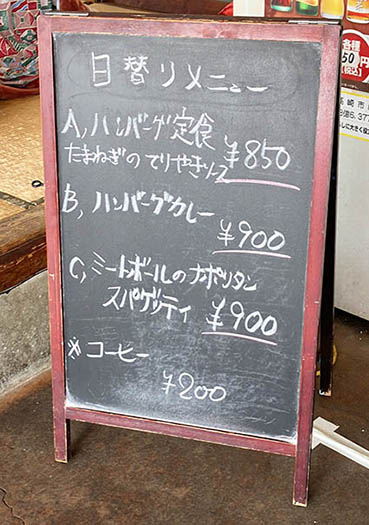 日替りメニュー
A, ハンバーグ定食
たまねぎのてりやきソース ¥850
B, ハンバーグカレー
¥900
C, ミートボールのナポリタン
スパゲッティ ¥900
※コーヒー
¥200
名様
50円
(税込)
高崎市